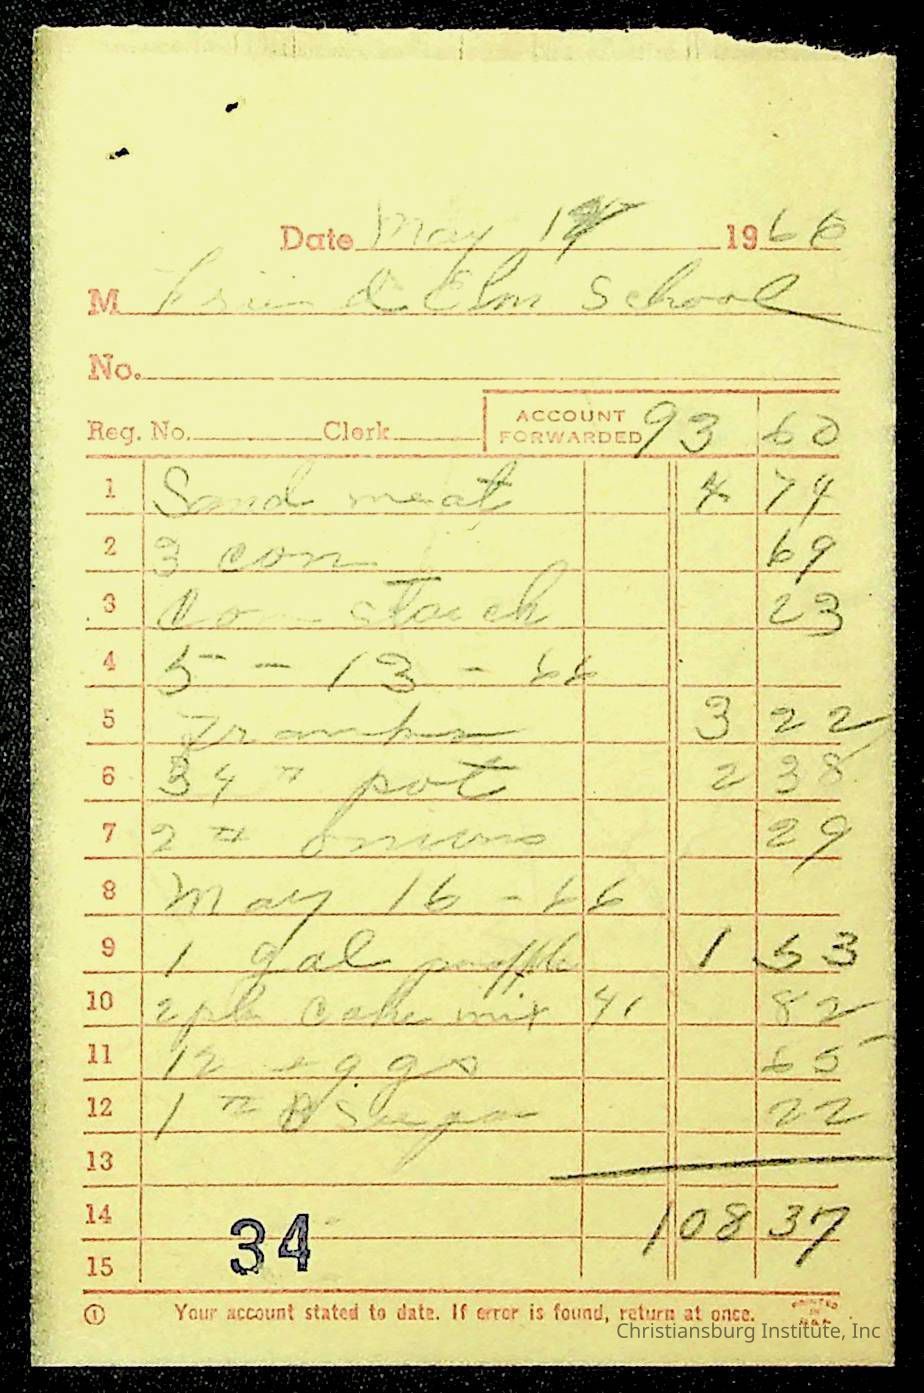 Date May 17 19 66
M Friend Elm School
No.
Reg. No. Clerk ACCOUNT FORWARDED 93 60
1 Sand meat 4 74
2 3 corn 69
3 Corn starch 23
4 5 - 13 - 66
5 Franks 3 22
6 34 # pot 2 38
7 2 # onions 29
8 May 16 - 66
9 1 gal 1 53
10 2 pk cake mix 41 82
11 12 eggs 65
12 1 # B Sugar 22
13
14 108 37
34
15
① Your account stated to date. If error is found, return at once.
PRINTED IN U.S.A.
Christiansburg Institute, Inc